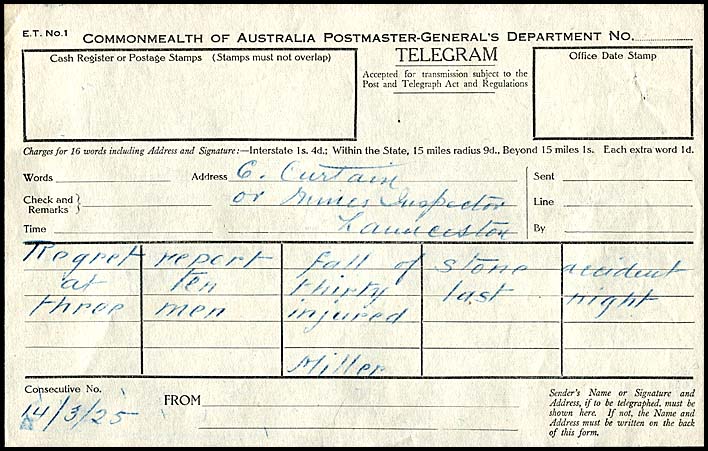 E.T. No.1 COMMONWEALTH OF AUSTRALIA POSTMASTER-GENERAL'S DEPARTMENT No.
Cash Register or Postage Stamps (Stamps must not overlap)
TELEGRAM
Accepted for transmission subject to the
Post and Telegraph Act and Regulations
Office Date Stamp
Charges for 16 words including Address and Signature:—Interstate 1s. 4d.; Within the State, 15 miles radius 9d., Beyond 15 miles 1s. Each extra word 1d.
Words Address C. Curtain Sent
Check and
Remarks } or Mines Inspector Line
Time Launceston By
Regret report fall of stone accident
at ten thirty last night
three men injured
Miller
Consecutive No.
14/3/25
FROM
Sender's Name or Signature and
Address, if to be telegraphed, must be
shown here. If not, the Name and
Address must be written on the back
of this form.